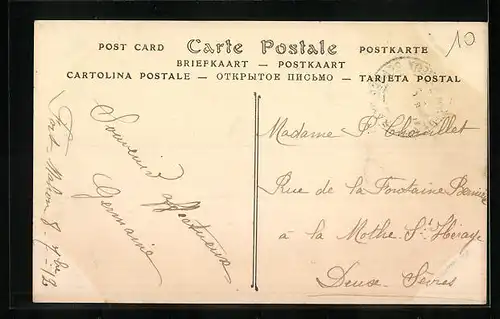 POST CARD Carte Postale POSTKARTE
BRIEFKAART — POSTKAART
CARTOLINA POSTALE — ОТКРЫТОЕ ПИСЬМО — TARJETA POSTAL
10
Souvenir affectueux
Germaine
Fort Mahon 8 7bre 12
Madame P. Chouillet
Rue de la Fontaine
à la Mothe St Héraye
Deux-Sèvres